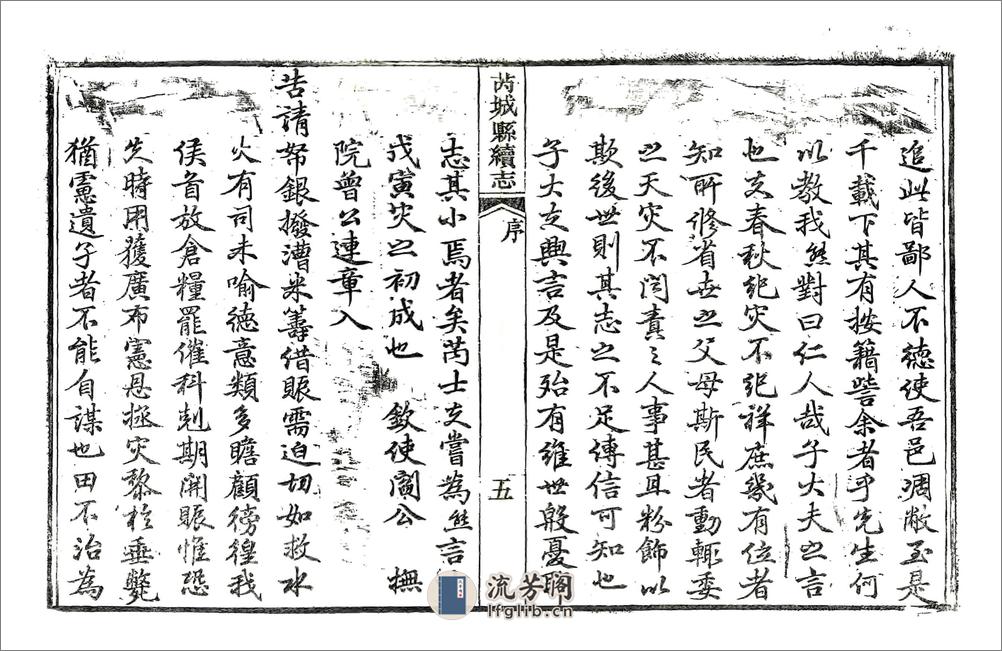 追此皆鄙人不德使吾邑凋敝至是
千載下其有按籍訾余者乎先生何
以教我熊對曰仁人哉子大夫之言
也夫春秋紀灾不紀祥庶幾有位者
知所修省世之父母斯民者動輒委
之天灾不関責之人事甚且粉飾以
欺後世則其志之不足傳信可知也
子大夫興言及是殆有維世殷憂
芮城縣續志
序
五
志其小焉者矣芮士夫嘗為熊言
戊寅灾之初成也 欽使閻公 撫
院曾公連章入
告請帑銀撥漕米籌借賑需迫切如救水
火有司未喻德意類多瞻顧徬徨我
侯首放倉糧罷催科剋期開賑惟恐
失時用獲廣布憲恩拯灾黎於垂斃
猶憲遺子者不能自謀也田不治為
流芳阁
lfglib.cn